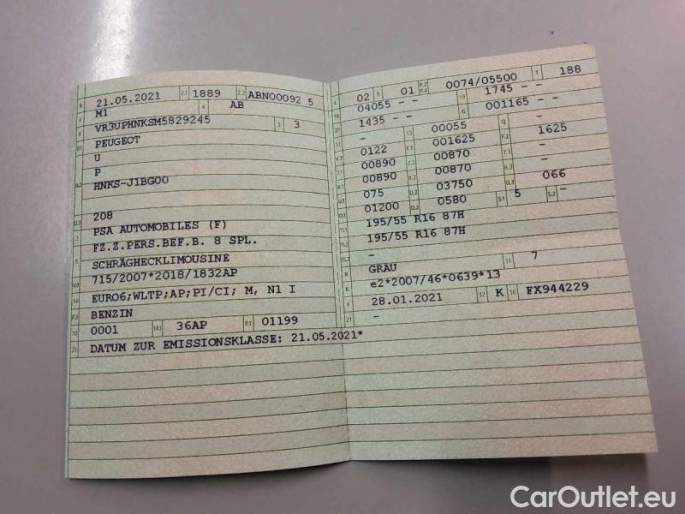 21.05.2021 1889 ABN00092 5
M1 AB
VR3UPHNKSM5829245 3
PEUGEOT
U
P
HNKS-J1BG00
208
PSA AUTOMOBILES (F)
FZ.Z.PERS.BEF.B. 8 SPL.
SCHRÄGHECKLIMOUSINE
715/2007*2018/1832AP
EURO6;WLTP;AP;PI/CI; M, N1 I
BENZIN
0001 36AP 01199
DATUM ZUR EMISSIONSKLASSE: 21.05.2021*
02 01 0074/05500 188
04055 - - 1745 - -
1435 - - 001165 - -
00055 -
0122 001625 1625
00890 00870 -
00890 00870 -
075 03750 066
01200 0580 5 -
195/55 R16 87H
195/55 R16 87H
-
GRAU 7
e2*2007/46*0639*13
28.01.2021 K FX944229
-
CarOutlet.eu